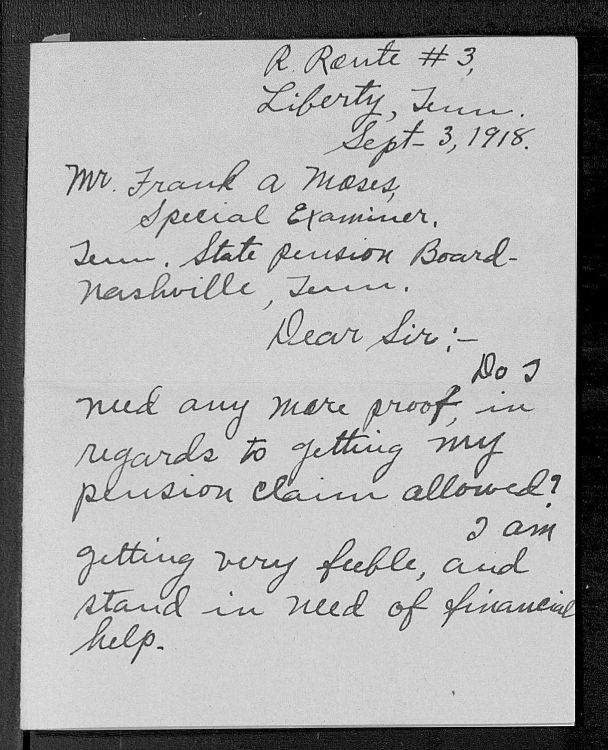 R. Route # 3,
Liberty, Tenn.
Sept- 3, 1918.
Mr. Frank A Moses,
Special Examiner.
Tenn. State Pension Board-
Nashville, Tenn.
Dear Sir:-
Do I
need any more proof, in
regards to getting my
pension claim allowed?
I am
getting very feeble, and
stand in need of financial
help.